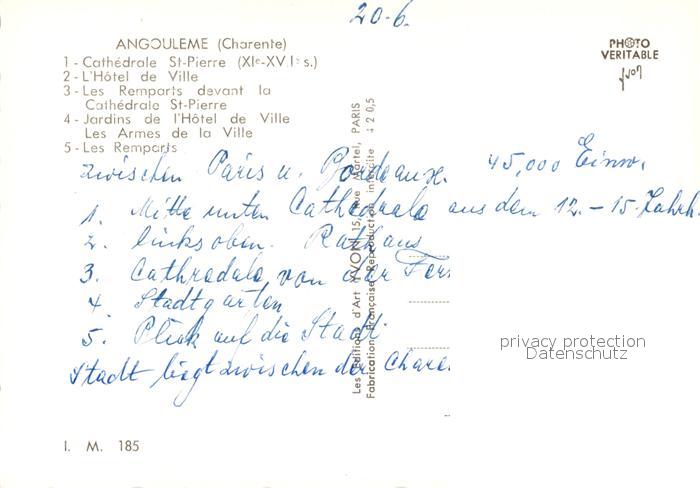 20-6.
ANGOULEME (Charente)
1 - Cathédrale St-Pierre (XIe-XVIe s.)
2 - L'Hôtel de Ville
3 - Les Remparts devant la
Cathédrale St-Pierre
4 - Jardins de l'Hôtel de Ville
Les Armes de la Ville
5 - Les Remparts
PHOTO
VERITABLE
yvon
zwischen Paris u. Bordeaux. 45,000 Einw.
1. Mitte unten Cathedrale aus dem 12.-15. Jahrh.
2. links oben. Rathaus
3. Cathredale von der Fer
4. Stadtgarten
5. Blick auf die Stadt.
Stadt liegt zwischen der Chare
Les Editions d'Art YVON, 15, rue Martel, PARIS
Fabrication Française - Reproduction interdite 4 2 0,5
privacy protection
Datenschutz
I. M. 185